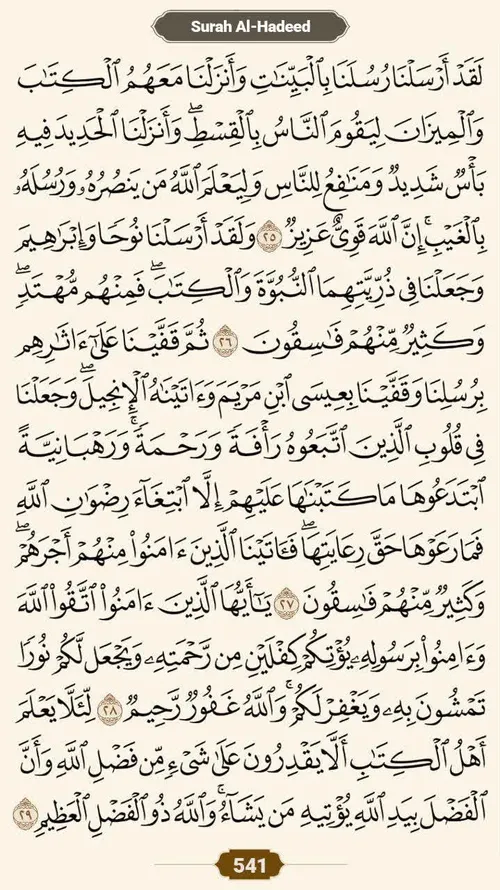 Surah Al-Hadeed
لَقَدْ أَرْسَلْنَا رُسُلَنَا بِٱلْبَيِّنَٰتِ وَأَنزَلْنَا مَعَهُمُ ٱلْكِتَٰبَ
وَٱلْمِيزَانَ لِيَقُومَ ٱلنَّاسُ بِٱلْقِسْطِۖ وَأَنزَلْنَا ٱلْحَدِيدَ فِيهِ
بَأْسٌ شَدِيدٌ وَمَنَٰفِعُ لِلنَّاسِ وَلِيَعْلَمَ ٱللَّهُ مَن يَنصُرُهُۥ وَرُسُلَهُۥ
بِٱلْغَيْبِۚ إِنَّ ٱللَّهَ قَوِىٌّ عَزِيزٌ ٢٥ وَلَقَدْ أَرْسَلْنَا نُوحًا وَإِبْرَٰهِيمَ
وَجَعَلْنَا فِى ذُرِّيَّتِهِمَا ٱلنُّبُوَّةَ وَٱلْكِتَٰبَۖ فَمِنْهُم مُّهْتَدٍۖ
وَكَثِيرٌ مِّنْهُمْ فَٰسِقُونَ ٢٦ ثُمَّ قَفَّيْنَا عَلَىٰٓ ءَاثَٰرِهِم
بِرُسُلِنَا وَقَفَّيْنَا بِعِيسَى ٱبْنِ مَرْيَمَ وَءَاتَيْنَٰهُ ٱلْإِنجِيلَۖ وَجَعَلْنَا
فِى قُلُوبِ ٱلَّذِينَ ٱتَّبَعُوهُ رَأْفَةً وَرَحْمَةًۚ وَرَهْبَانِيَّةً
ٱبْتَدَعُوهَا مَا كَتَبْنَٰهَا عَلَيْهِمْ إِلَّا ٱبْتِغَآءَ رِضْوَٰنِ ٱللَّهِ
فَمَا رَعَوْهَا حَقَّ رِعَايَتِهَاۖ فَـَٔاتَيْنَا ٱلَّذِينَ ءَامَنُوا۟ مِنْهُمْ أَجْرَهُمْۖ
وَكَثِيرٌ مِّنْهُمْ فَٰسِقُونَ ٢٧ يَٰٓأَيُّهَا ٱلَّذِينَ ءَامَنُوا۟ ٱتَّقُوا۟ ٱللَّهَ
وَءَامِنُوا۟ بِرَسُولِهِۦ يُؤْتِكُمْ كِفْلَيْنِ مِن رَّحْمَتِهِۦ وَيَجْعَل لَّكُمْ نُورًا
تَمْشُونَ بِهِۦ وَيَغْفِرْ لَكُمْۚ وَٱللَّهُ غَفُورٌ رَّحِيمٌ ٢٨ لِّئَلَّا يَعْلَمَ
أَهْلُ ٱلْكِتَٰبِ أَلَّا يَقْدِرُونَ عَلَىٰ شَىْءٍ مِّن فَضْلِ ٱللَّهِ وَأَنَّ
ٱلْفَضْلَ بِيَدِ ٱللَّهِ يُؤْتِيهِ مَن يَشَآءُۚ وَٱللَّهُ ذُو ٱلْفَضْلِ ٱلْعَظِيمِ ٢٩
541